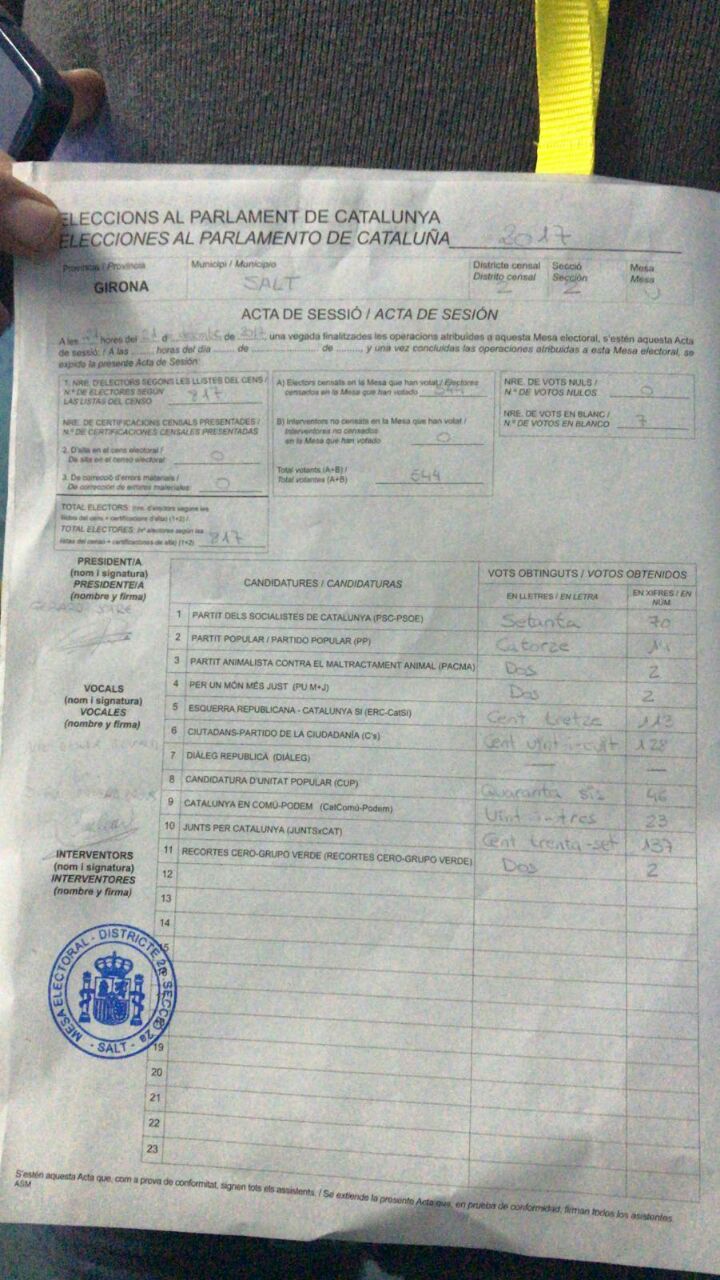 ELECCIONS AL PARLAMENT DE CATALUNYA
ELECCIONES AL PARLAMENTO DE CATALUÑA 2017
Província / Provincia Municipi / Municipio Districte censal Secció Mesa
Distrito censal Sección Mesa
GIRONA SALT 2 2 U
ACTA DE SESSIÓ / ACTA DE SESIÓN
A les hores del 21 d de 2017 una vegada finalitzades les operacions atribuïdes a aquesta Mesa electoral, s'estén aquesta Acta
de sessió: / A las horas del día de de y una vez concluidas las operaciones atribuidas a esta Mesa electoral, se
expide la presente Acta de Sesión:
1. NRE. D'ELECTORS SEGONS LES LLISTES DEL CENS /
N.º DE ELECTORES SEGÚN
LAS LISTAS DEL CENSO 817
NRE. DE CERTIFICACIONS CENSALS PRESENTADES /
N.º DE CERTIFICACIONES CENSALES PRESENTADAS
2. D'alta en el cens electoral /
De alta en el censo electoral 0
3. De correcció d'errors materials /
De corrección de errores materiales 0
TOTAL ELECTORS: (nre. d'electors segons les
llistes del cens + certificacions d'alta) (1+2) /
TOTAL ELECTORES: (nº electores según las
listas del censo + certificaciones de alta) (1+2) 817
A) Electors censals en la Mesa que han votat / Electores
censados en la Mesa que han votado 544
B) Interventors no censats en la Mesa que han votat /
Interventores no censados
en la Mesa que han votado 0
Total votants (A+B) /
Total votantes (A+B) 544
NRE. DE VOTS NULS /
N.º DE VOTOS NULOS 0
NRE. DE VOTS EN BLANC /
N.º DE VOTOS EN BLANCO 7
PRESIDENT/A
(nom i signatura)
PRESIDENTE/A
(nombre y firma)
VOCALS
(nom i signatura)
VOCALES
(nombre y firma)
INTERVENTORS
(nom i signatura)
INTERVENTORES
(nombre y firma)
CANDIDATURES / CANDIDATURAS VOTS OBTINGUTS / VOTOS OBTENIDOS
EN LLETRES / EN LETRA EN XIFRES / EN NÚM.
1 PARTIT DELS SOCIALISTES DE CATALUNYA (PSC-PSOE) Setanta 70
2 PARTIT POPULAR / PARTIDO POPULAR (PP) Catorze 14
3 PARTIT ANIMALISTA CONTRA EL MALTRACTAMENT ANIMAL (PACMA) Dos 2
4 PER UN MÓN MÉS JUST (PU M+J) Dos 2
5 ESQUERRA REPUBLICANA - CATALUNYA SI (ERC-CatSi) Cent tretze 113
6 CIUTADANS-PARTIDO DE LA CIUDADANÍA (C's) Cent vint-i-vuit 128
7 DIÀLEG REPUBLICÀ (DIÀLEG) — —
8 CANDIDATURA D'UNITAT POPULAR (CUP) Quaranta sis 46
9 CATALUNYA EN COMÚ-PODEM (CatComú-Podem) Vint-i-tres 23
10 JUNTS PER CATALUNYA (JUNTSxCAT) Cent trenta-set 137
11 RECORTES CERO-GRUPO VERDE (RECORTES CERO-GRUPO VERDE) Dos 2
12
13
14
15
19
20
21
22
23
MESA ELECTORAL - DISTRICTE 2n SECCIÓ 2a
- SALT -
S'estén aquesta Acta que, com a prova de conformitat, signen tots els assistents. / Se extiende la presente Acta que, en prueba de conformidad, firman todos los asistentes.
ASM